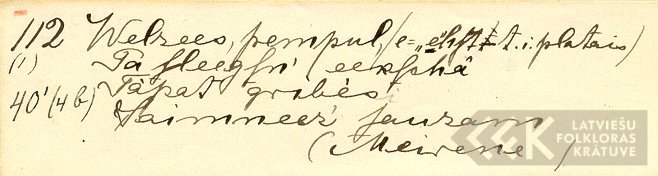 112 Welzees, pempul, (e= „ehst t. i. platais)
(1) Pa fleegsni eekschâ
40' (4 b) Tapat gribês
Saimneez jauzam
(Meirene)
LATVIEŠU
FOLKLORAS
KRĀTUVE